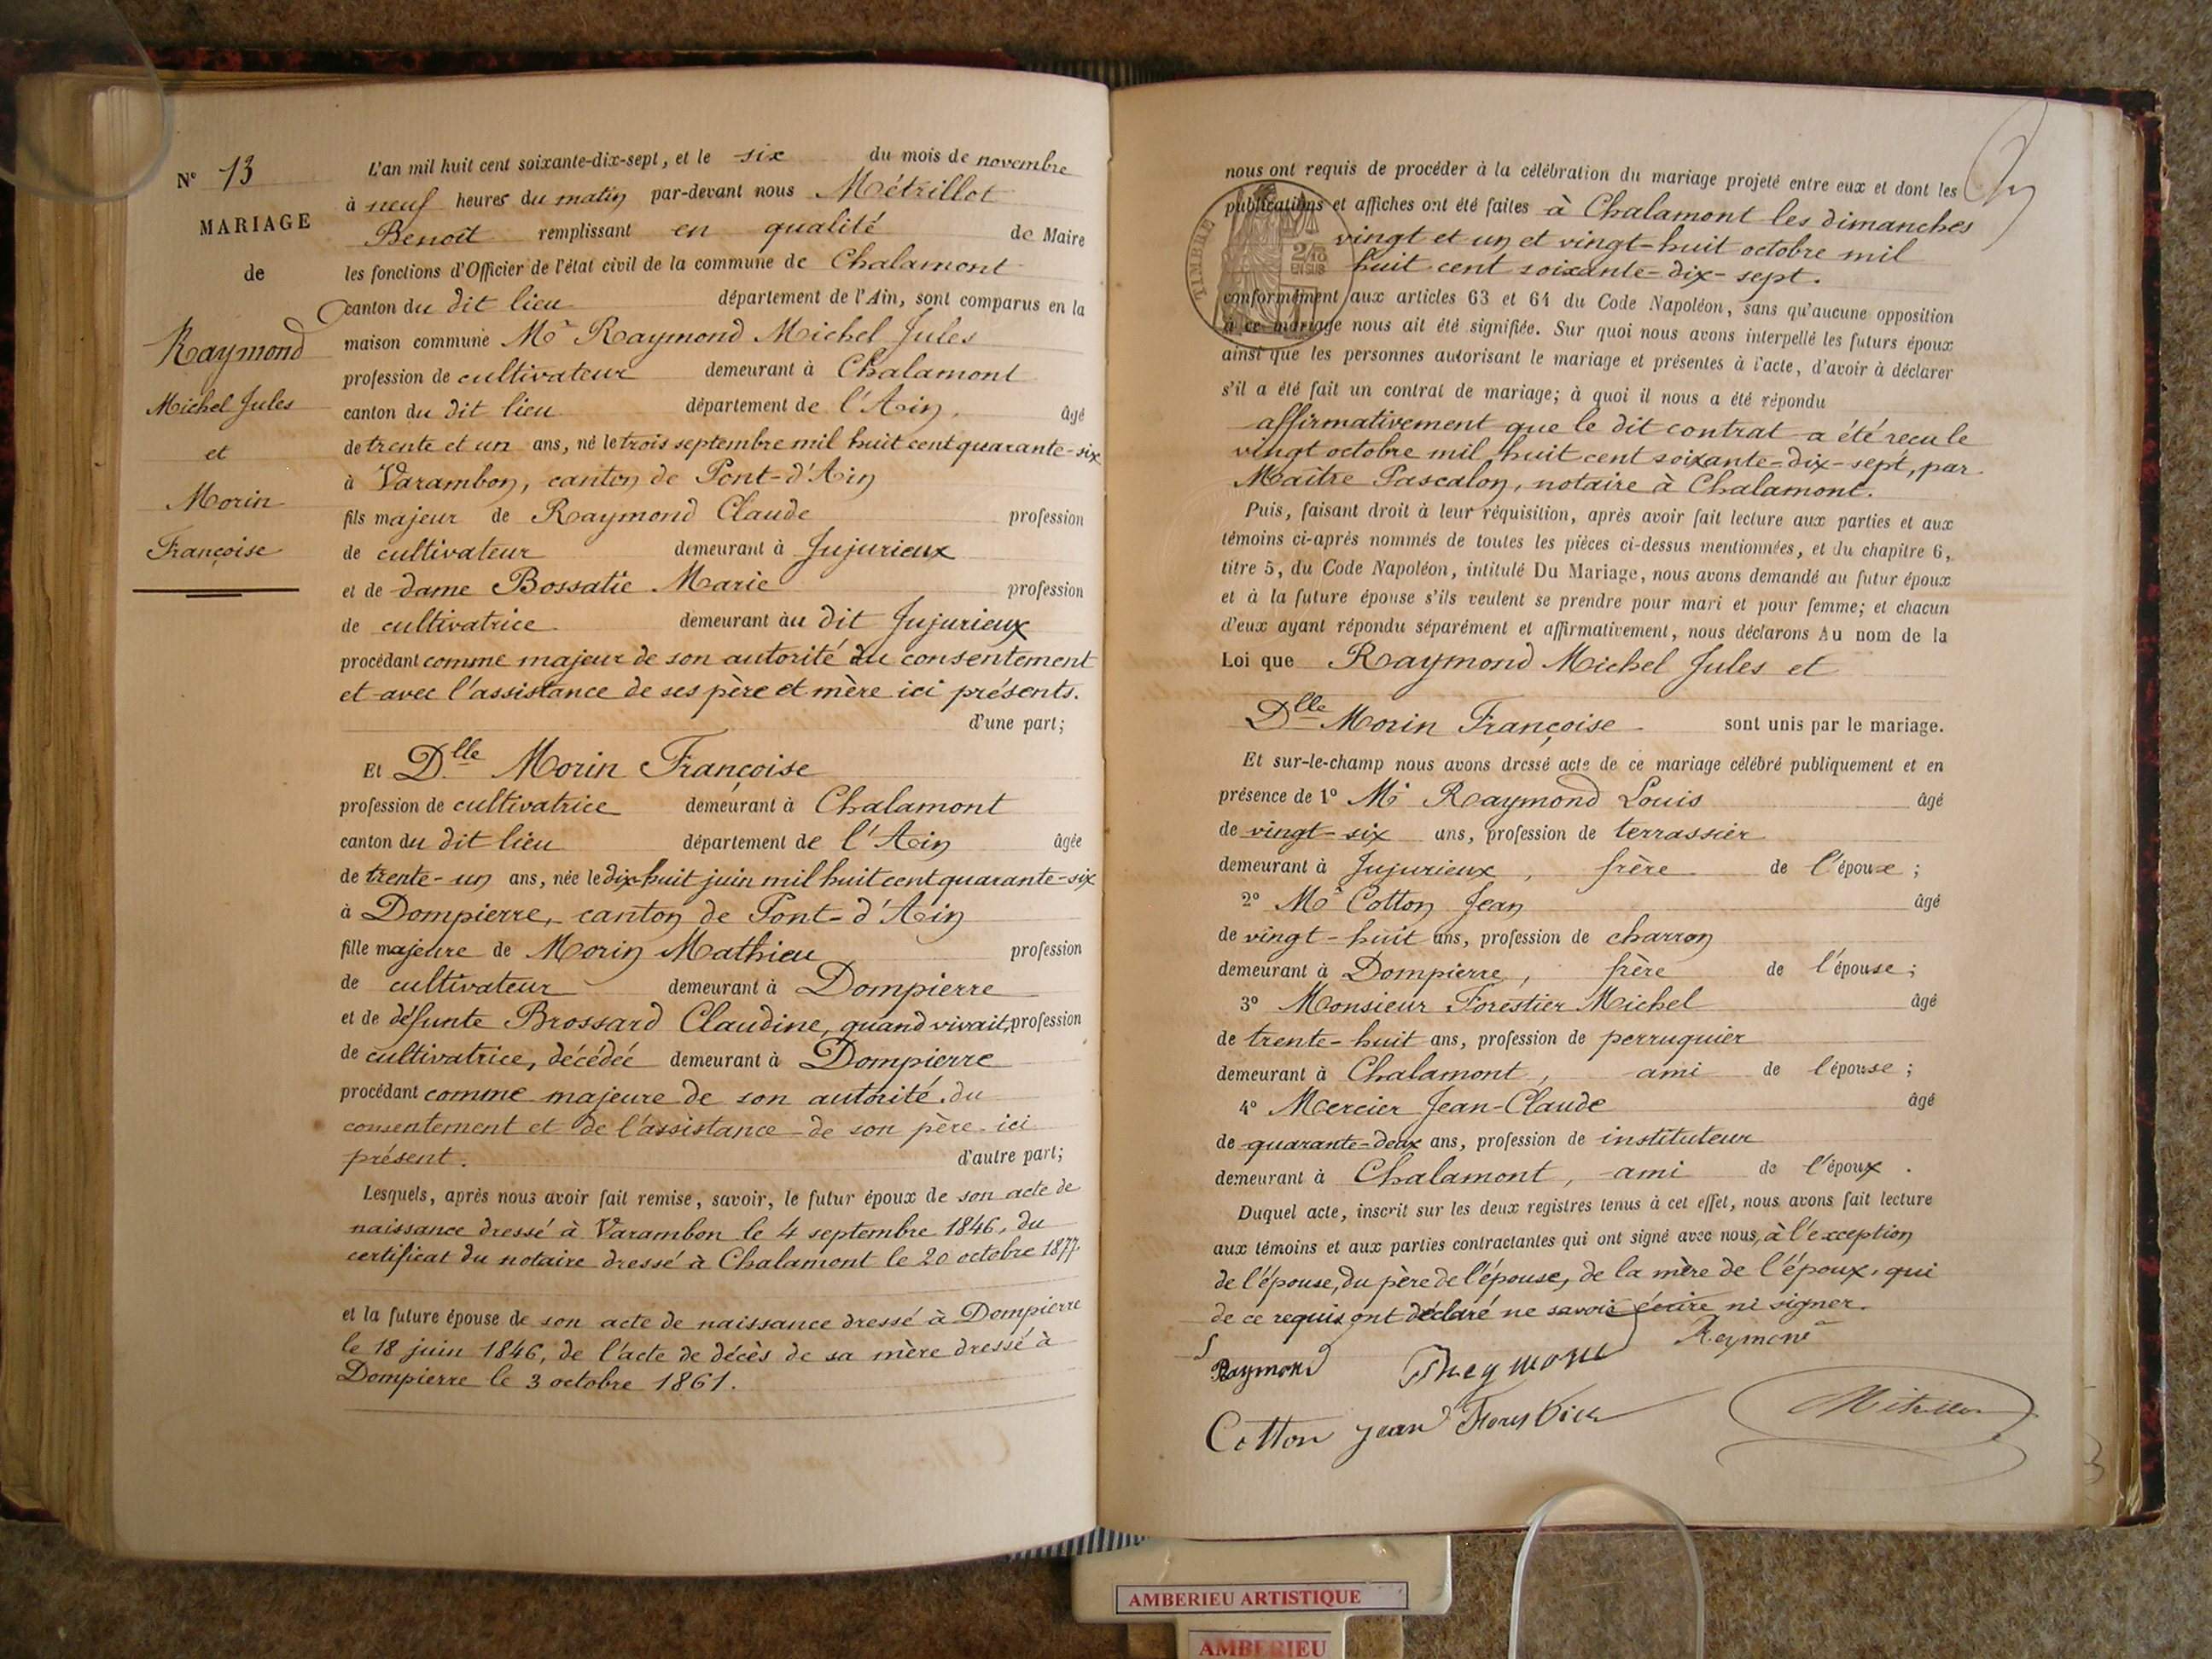 N° 13
MARIAGE
de
Raymond
Michel Jules
et
Morin
Françoise
L'an mil huit cent soixante-dix-sept, et le six du mois de novembre
à neuf heures du matin par-devant nous Métrillot
Benoit remplissant en qualité de Maire
les fonctions d'Officier de l'état civil de la commune de Chalamont
canton du dit lieu département de l'Ain, sont comparus en la
maison commune Mr Raymond Michel Jules
profession de cultivateur demeurant à Chalamont
canton du dit lieu département de l'Ain, âgé
de trente et un ans, né le trois septembre mil huit cent quarante-six
à Varambon, canton de Pont-d'Ain
fils majeur de Raymond Claude profession
de cultivateur demeurant à Jujurieux
et de dame Bossatie Marie profession
de cultivatrice demeurant au dit Jujurieux
procédant comme majeur de son autorité du consentement
et avec l'assistance de ses père et mère ici présents.
d'une part;
Et Dlle Morin Françoise
profession de cultivatrice demeurant à Chalamont
canton du dit lieu département de l'Ain âgée
de trente-un ans, née le dix-huit juin mil huit cent quarante-six
à Dompierre, canton de Pont-d'Ain
fille majeure de Morin Mathieu profession
de cultivateur demeurant à Dompierre
et de défunte Brossard Claudine, quand vivait, profession
de cultivatrice, décédée demeurant à Dompierre
procédant comme majeure de son autorité du
consentement et de l'assistance de son père ici
présent. d'autre part;
Lesquels, après nous avoir fait remise, savoir, le futur époux de son acte de
naissance dressé à Varambon le 4 septembre 1846, du
certificat du notaire dressé à Chalamont le 20 octobre 1877.
et la future épouse de son acte de naissance dressé à Dompierre
le 18 juin 1846, de l'acte de décès de sa mère dressé à
Dompierre le 3 octobre 1861.
nous ont requis de procéder à la célébration du mariage projeté entre eux et dont les
publications et affiches ont été faites à Chalamont les dimanches
vingt et un et vingt-huit octobre mil
huit cent soixante-dix-sept.
TIMBRE
2/10
EN SUS
conformément aux articles 63 et 64 du Code Napoléon, sans qu'aucune opposition
à ce mariage nous ait été signifiée. Sur quoi nous avons interpellé les futurs époux
ainsi que les personnes autorisant le mariage et présentes à l'acte, d'avoir à déclarer
s'il a été fait un contrat de mariage; à quoi il nous a été répondu
affirmativement que le dit contrat a été reçu le
vingt octobre mil huit cent soixante-dix-sept, par
Maître Pascalon, notaire à Chalamont.
Puis, faisant droit à leur réquisition, après avoir fait lecture aux parties et aux
témoins ci-après nommés de toutes les pièces ci-dessus mentionnées, et du chapitre 6,
titre 5, du Code Napoléon, intitulé Du Mariage, nous avons demandé au futur époux
et à la future épouse s'ils veulent se prendre pour mari et pour femme; et chacun
d'eux ayant répondu séparément et affirmativement, nous déclarons Au nom de la
Loi que Raymond Michel Jules et
Dlle Morin Françoise sont unis par le mariage.
Et sur-le-champ nous avons dressé acte de ce mariage célébré publiquement et en
présence de 1° Mr Raymond Louis âgé
de vingt-six ans, profession de terrassier
demeurant à Jujurieux, frère de l'époux;
2° Mr Cotton Jean âgé
de vingt-huit ans, profession de charron
demeurant à Dompierre, frère de l'épouse;
3° Monsieur Forestier Michel âgé
de trente-huit ans, profession de perruquier
demeurant à Chalamont, ami de l'épouse;
4° Mercier Jean-Claude âgé
de quarante-deux ans, profession de instituteur
demeurant à Chalamont, ami de l'époux.
Duquel acte, inscrit sur les deux registres tenus à cet effet, nous avons fait lecture
aux témoins et aux parties contractantes qui ont signé avec nous, à l'exception
de l'épouse, du père de l'épouse, de la mère de l'époux, qui
de ce requis ont déclaré ne savoir écrire ni signer.
Raymond Raymond
Cotton jean Forestier
AMBERIEU ARTISTIQUE
AMBERIEU